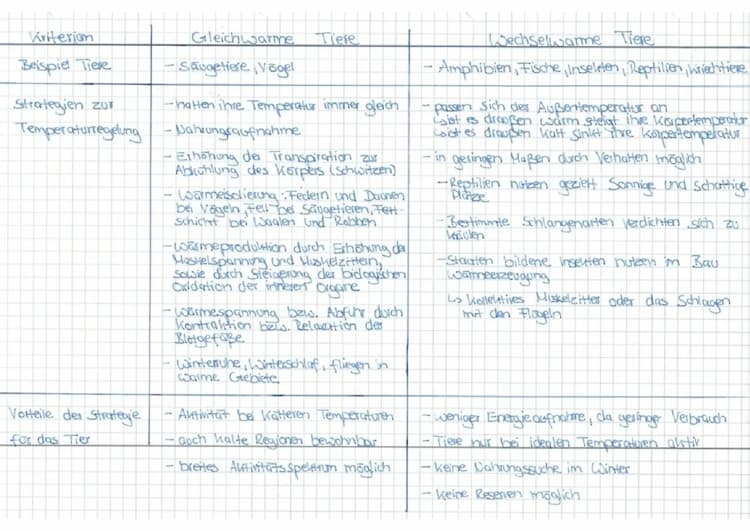 Kriterium
Gleichwarme Tiere
Wechselwarme Tiere
Beispiel Tiere
- Säugetiere, Vögel
- Amphibien, Fische, Insekten, Reptilien, Kriechtiere
Strategien zur
Temperaturregelung
- halten ihre Temperatur immer gleich
- Nahrungsaufnahme
- Erhöhung der Transpiration zur
Abkühlung des Körpers (schwitzen)
- Wärmeisolierung: Federn und Daunen
bei Vögeln, Fell bei Säugetieren, Fett-
schicht bei Waalen und Robben
- Wärmeproduktion durch Erhöhung der
Muskelspannung und Muskelzittern,
sowie durch Steigerung der biologischen
Oxidation der inneren Organe
- Wärmespannung bzw. Abfuhr durch
Kontraktion bzw. Relaxation der
Blutgefäße
- Winterruhe, Winterschlaf, fliegen in
warme Gebiete
- passen sich der Außentemperatur an
ist es draußen warm steigt ihre Körpertemperatur
ist es draußen kalt sinkt ihre Körpertemperatur
- in geringen Maßen durch Verhalten möglich
- Reptilien nutzen gezielt Sonnige und schattige
Plätze
- Bestimmte Schlangenarten verdichten sich zu
- Staaten bildene Insekten nutzen im Bau
Wärmeerzeugung
↳ Kollektives Muskelzitter oder das Schlagen
mit den Flügeln
Vorteile der Strategie
für das Tier
- Aktivität bei kälteren Temperaturen
- auch kalte Regionen bewohnbar
- breites Aktivitätsspektrum möglich
- weniger Energieaufnahme, da geringer Verbrauch
- Tiere nur bei idealen Temperaturen aktiv
- keine Nahrungssuche im Winter
- keine Reserven möglich